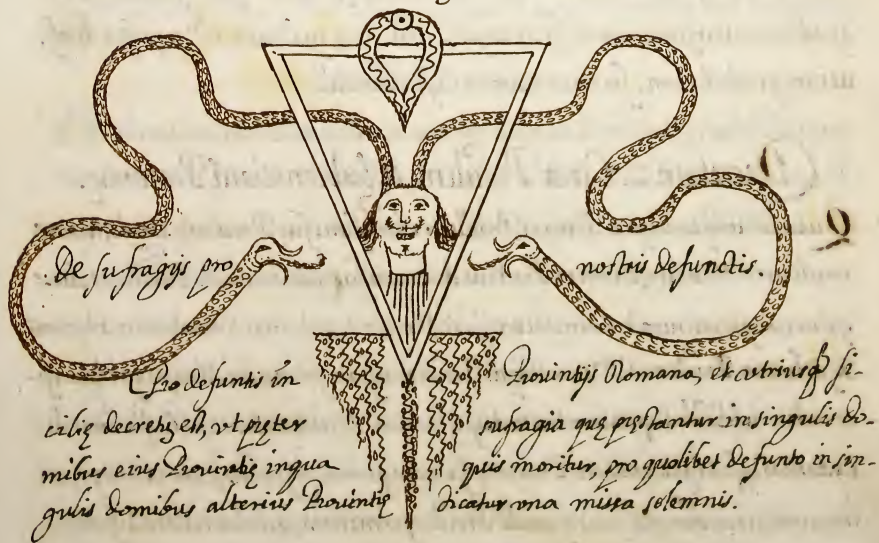 de sufragijs pro nostris defunctis.
Pro defuntis in Prouintijs Romana, et utriusqꝫ si-
cilię decretũ est, vt pręter sufragia quę pręstantur in singulis do-
mibus eius Prouintię in qua quis moritur, pro qualibet defunto in sin-
gulis domibus alterius Prouintię dicatur vna missa solemnis.